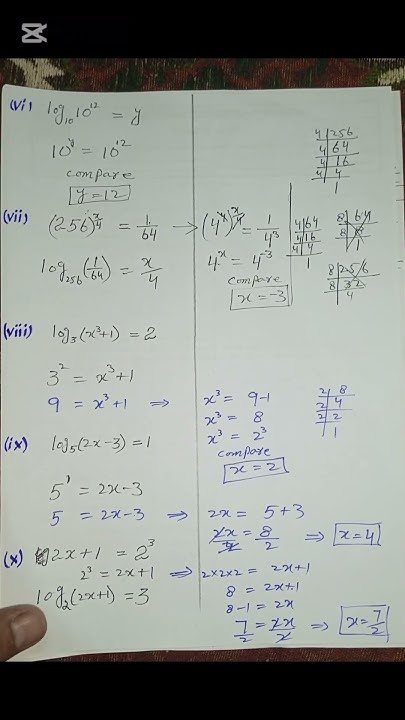 (vi) log₁₀10¹² = y
10ʸ = 10¹²
compare
y=12
4|256
4|64
4|16
4|4
1
(vii) (256)^(x/4) = 1/64 → (4⁴)^(x/4) = 1/4³
log₂₅₆(1/64) = x/4
4ˣ = 4⁻³
compare
x=-3
4|64
4|16
4|4
1
8|64
8|8
1
8|256
8|32
4
(viii) log₃(x³+1) = 2
3² = x³+1
9 = x³+1 ⇒ x³ = 9-1
x³ = 8
x³ = 2³
compare
x=2
2|8
2|4
2|2
1
(ix) log₅(2x-3) = 1
5¹ = 2x-3
5 = 2x-3 ⇒ 2x = 5+3
2x/2 = 8/2 ⇒ x=4
(x) 2x+1 = 2³
2³ = 2x+1 ⇒ 2×2×2 = 2x+1
log₂(2x+1) = 3
8 = 2x+1
8-1 = 2x
7/2 = 2x/2 ⇒ x=7/2